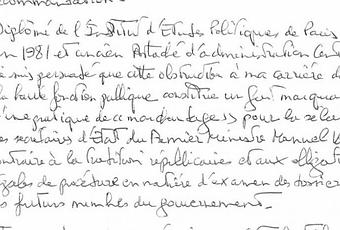 recommandation.
Diplômé de l'Institut d'Etudes Politiques de Paris
en 1981 et ancien Attaché d'administration Cent
suis persuadé que cette obstruction à ma carrière d
la haute fonction publique constitue un fait marqua
d'une pratique de « marchandage » pour la sélec
es secrétaires d'Etat du Premier Ministre Manuel V
contraire à la Constitution républicaine et aux obligat
égales de procédure en matière d'examen des dossier
s futurs membres du gouvernement.